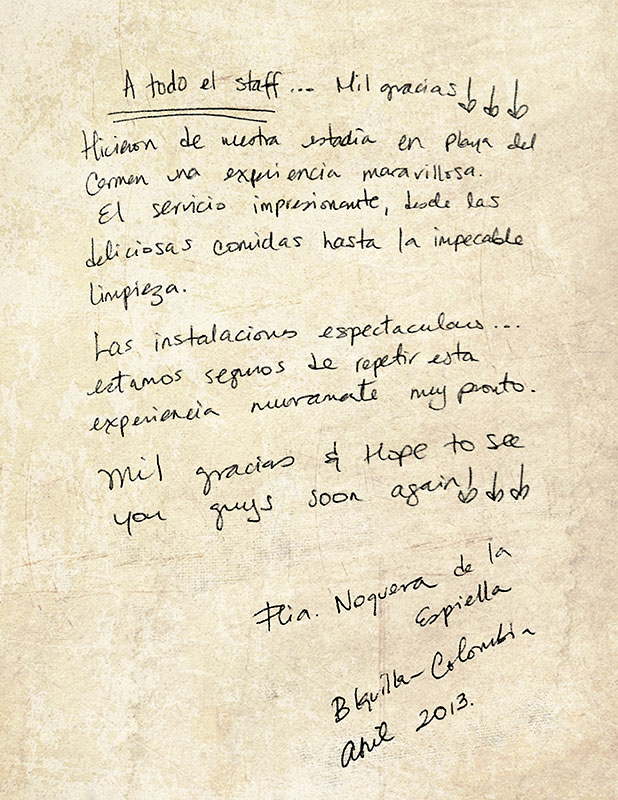 A todo el staff... Mil gracias!!!
Hicieron de nuestra estadia en Playa del
Carmen una experiencia maravillosa.
El servicio impresionante, desde las
deliciosas comidas hasta la impecable
limpieza.
Las instalaciones espectaculares...
estamos seguros de repetir esta
experiencia nuevamente muy pronto.
Mil gracias & Hope to see
you guys soon again!!!
Flia. Noguera de la
Espriella
B/quilla-Colombia
Abril 2013.